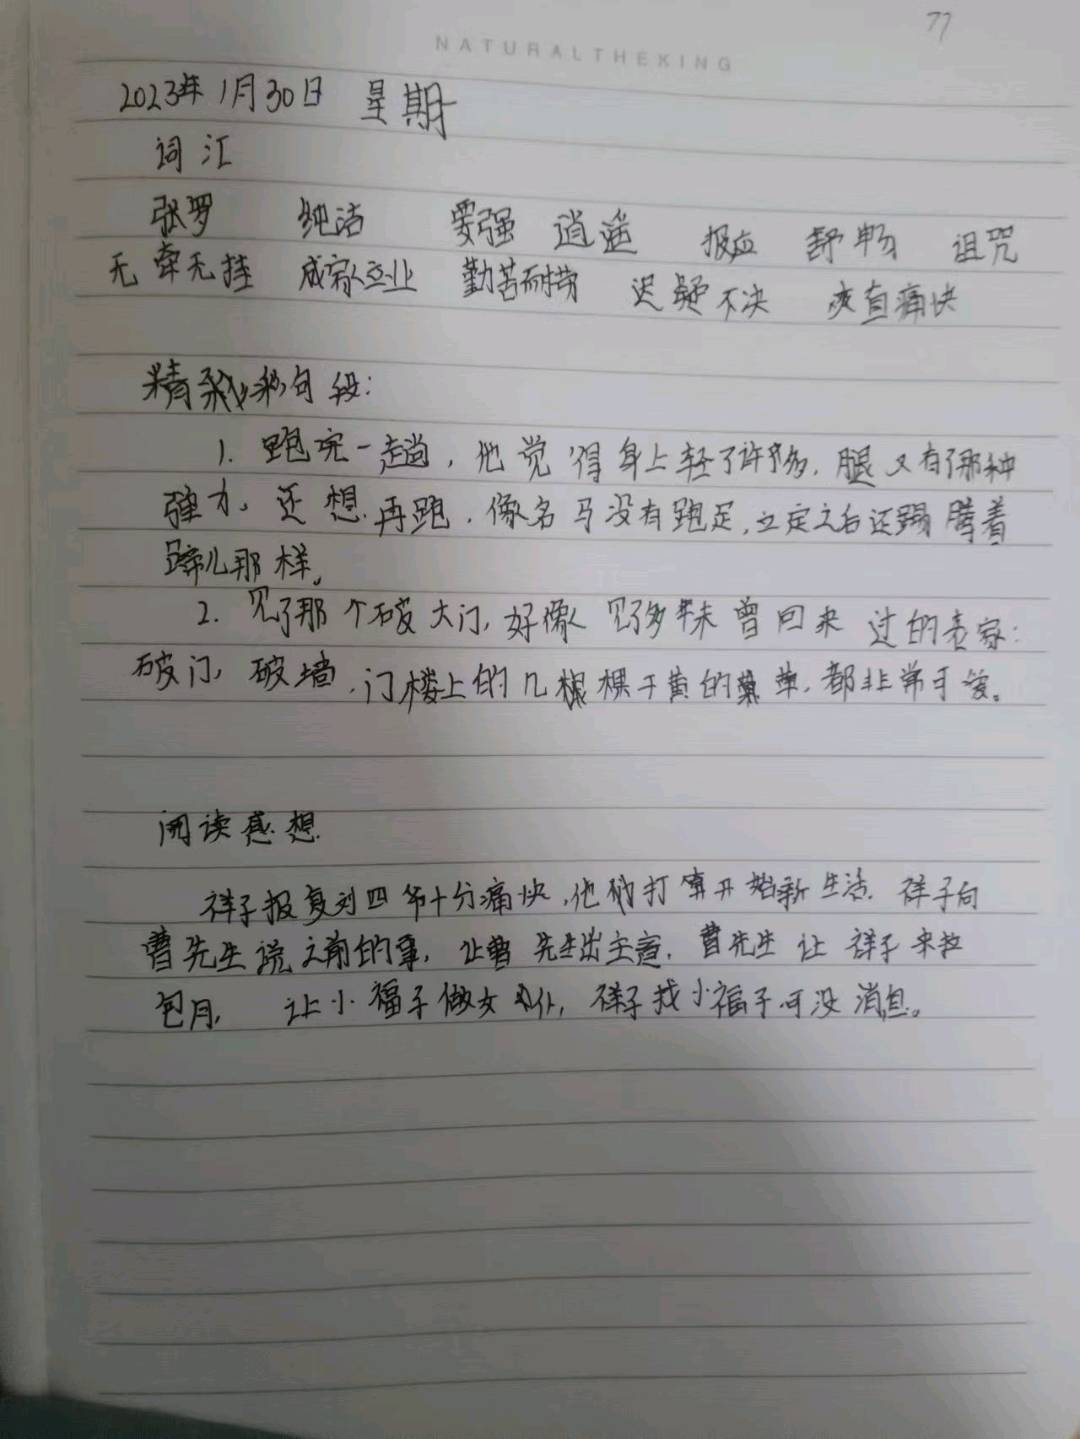 77
NATURALTHEKING
2023年1月30日 星期一
词汇
张罗 纯洁 要强 逍遥 报应 舒畅 诅咒
无牵无挂 成家立业 勤苦耐劳 迟疑不决 爽直痛快
精彩句段：
1. 跑完一趟，他觉得身上轻了许多，腿又有了那种
弹力，还想再跑，像名马没有跑足，立定之后还踢腾着
蹄儿那样。
2. 见了那个破大门，好像见了多年未曾回来过的老家：
破门，破墙，门楼上的几棵干黄的草，都非常可爱。
阅读感想
祥子报复刘四爷十分痛快，他们打算开始新生活，祥子向
曹先生说之前的事，让曹先生出主意，曹先生让祥子来拉
包月， 让小福子做女仆，祥子找小福子可没消息。